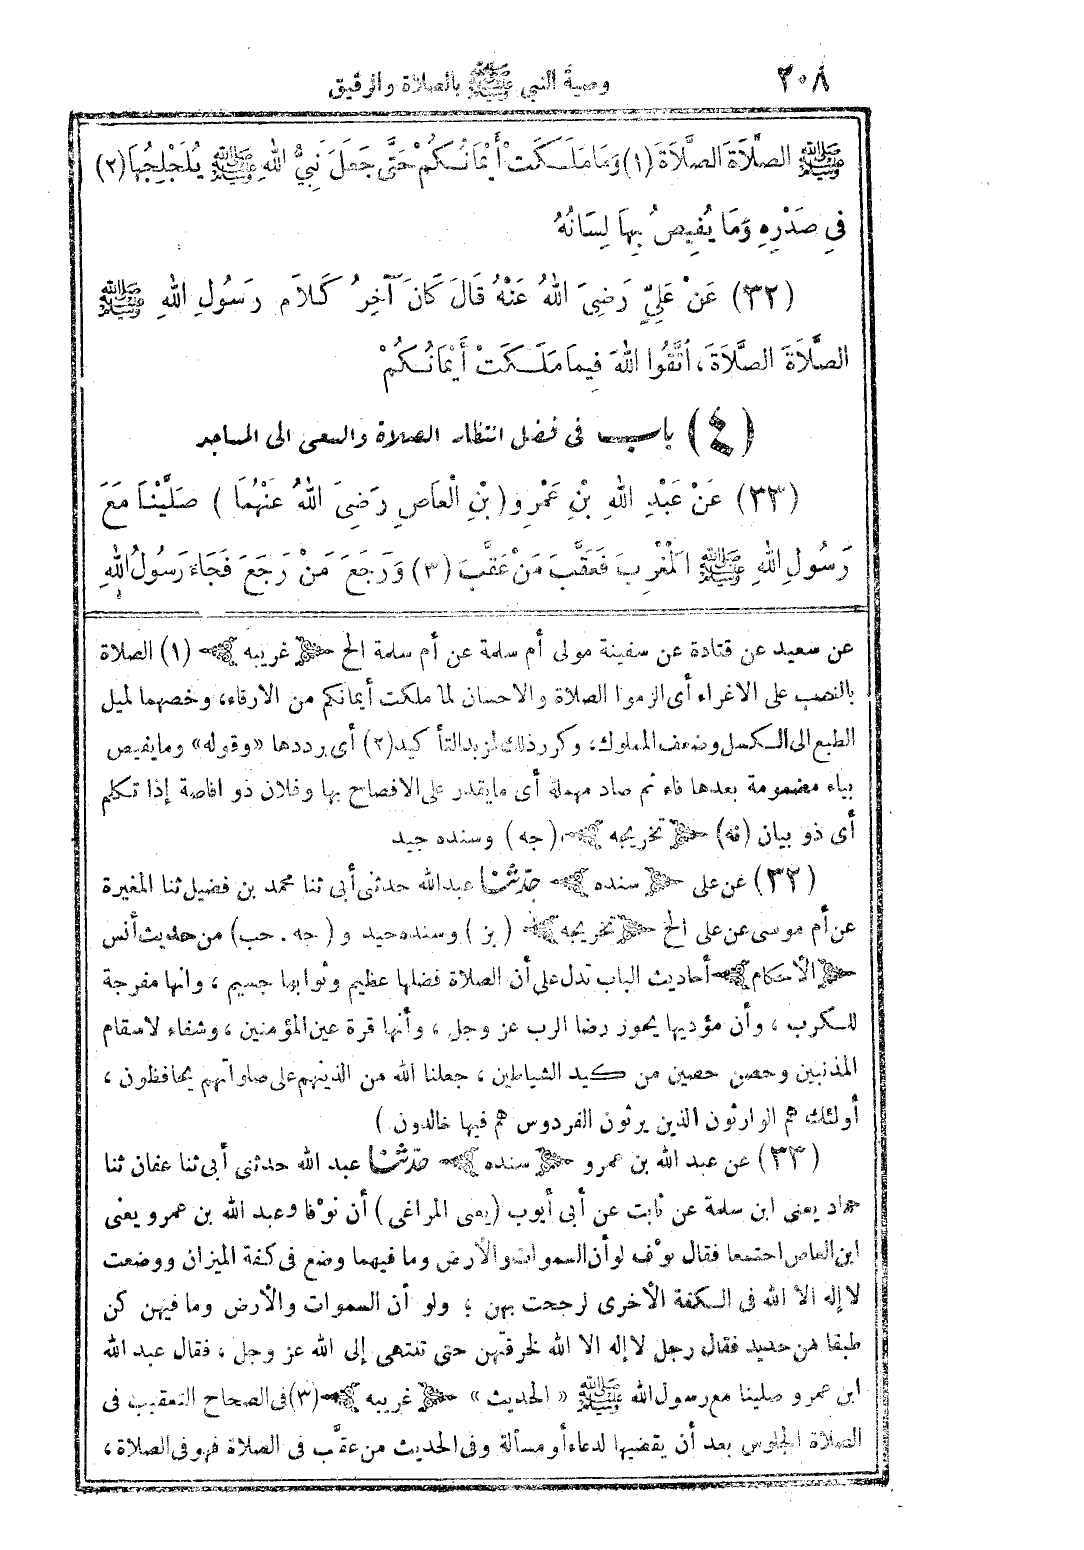 ٢٠٨ وصية النبي ﷺ بالصلاة والرقيق
ﷺ الصَّلَاةَ الصَّلَاةَ (١) وَمَا مَلَكَتْ أَيْمَانُكُمْ حَتَّى جَعَلَ نَبِيُّ اللهِ ﷺ يُلَجْلِجُهَا (٢)
فِي صَدْرِهِ وَمَا يُفِيصُ بِهَا لِسَانُهُ
(٣٢) عَنْ عَلِيٍّ رَضِيَ اللهُ عَنْهُ قَالَ كَانَ آخِرُ كَلَامِ رَسُولِ اللهِ ﷺ
الصَّلَاةَ الصَّلَاةَ، اُتَّقُوا اللهَ فِيمَا مَلَكَتْ أَيْمَانُكُمْ
(٤) باب فى فضل انتظار الصلاة والسعى الى المساجد
(٣٣) عَنْ عَبْدِ اللهِ بْنِ عَمْرِو (بْنِ الْعَاصِ رَضِيَ اللهُ عَنْهُمَا) صَلَّيْنَا مَعَ
رَسُولِ اللهِ ﷺ الْمَغْرِبَ فَعَقَّبَ مَنْ عَقَّبَ (٣) وَرَجَعَ مَنْ رَجَعَ فَجَاءَ رَسُولُ اللهِ
عن سعيد عن قتادة عن سفينة مولى أم سلمة عن أم سلمة الخ ﴿غريبه﴾ (١) الصلاة
بالنصب على الاغراء أى الزموا الصلاة والاحسان لما ملكت أيمانكم من الارقاء، وخصهما لميل
الطبع الى الكسل وضعف المملوك، وكرر ذلك لمزيد التأكيد (٢) أى رددها «وقوله» وما يفيص
بياء مضمومة بعدها فاء ثم صاد مهملة أى ما يقدر على الافصاح بها وفلان ذو افاصة إذا تكلم
أى ذو بيان (نه) ﴿تخريجه﴾ (جه) وسنده جيد
(٣٢) عن على ﴿سنده﴾ حدّثنا عبد الله حدثنى أبى ثنا محمد بن فضيل ثنا المغيرة
عن أم موسى عن على الخ ﴿تخريجه﴾ (بز) وسنده جيد و (جه . حب) من حديث أنس
﴿الأحكام﴾ أحاديث الباب تدل على أن الصلاة فضلها عظيم وثوابها جسيم، وانها مفرجة
للكرب، وأن مؤديها يحوز رضا الرب عز وجل، وأنها قرة عين المؤمنين، وشفاء لاسقام
المذنبين وحصن حصين من كيد الشياطين، جعلنا الله من الذين هم على صلواتهم يحافظون،
أولئك هم الوارثون الذين يرثون الفردوس هم فيها خالدون )
(٣٣) عن عبد الله بن عمرو ﴿سنده﴾ حدّثنا عبد الله حدثنى أبى ثنا عفان ثنا
حماد يعنى ابن سلمة عن ثابت عن أبى أيوب (يعنى المراغى) أن نوْفا وعبد الله بن عمرو يعنى
ابن العاص اجتمعا فقال نوْف لو أن السموات والأرض وما فيهما وضع فى كفة الميزان ووضعت
لا إله الا الله فى الكفة الأخرى لرجحت بهن؛ ولو أن السموات والأرض وما فيهن كن
طبقا من حديد فقال رجل لا إله الا الله لخرقتهن حتى تنتهى إلى الله عز وجل، فقال عبد الله
ابن عمرو صلينا مع رسول الله ﷺ «الحديث» ﴿غريبه﴾ (٣) فى الصحاح التعقيب فى
الصلاة الجلوس بعد أن يقضيها لدعاء أو مسألة وفى الحديث من عقَّب فى الصلاة فهو فى الصلاة،